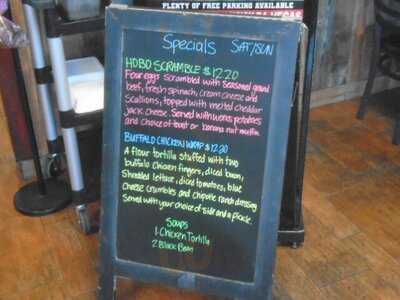 PLENTY OF FREE PARKING AVAILABLE
Specials SAT/SUN
HOBO SCRAMBLE $12.20
Four eggs scrambled with seasoned ground
beef, fresh spinach, cream cheese and
Scallions, topped with melted cheddar
jack cheese. Served with works potatoes
and choice of toast or banana nut muffin
BUFFALO CHICKEN WRAP $12.20
A flour tortilla stuffed with two
buffalo chicken fingers, diced bacon,
Shredded lettuce, diced tomatoes, blue
Cheese crumbles and chipotle ranch dressing
Served with your choice of side and a pickle.
Soups
1. Chicken Tortilla
2 Black Bean